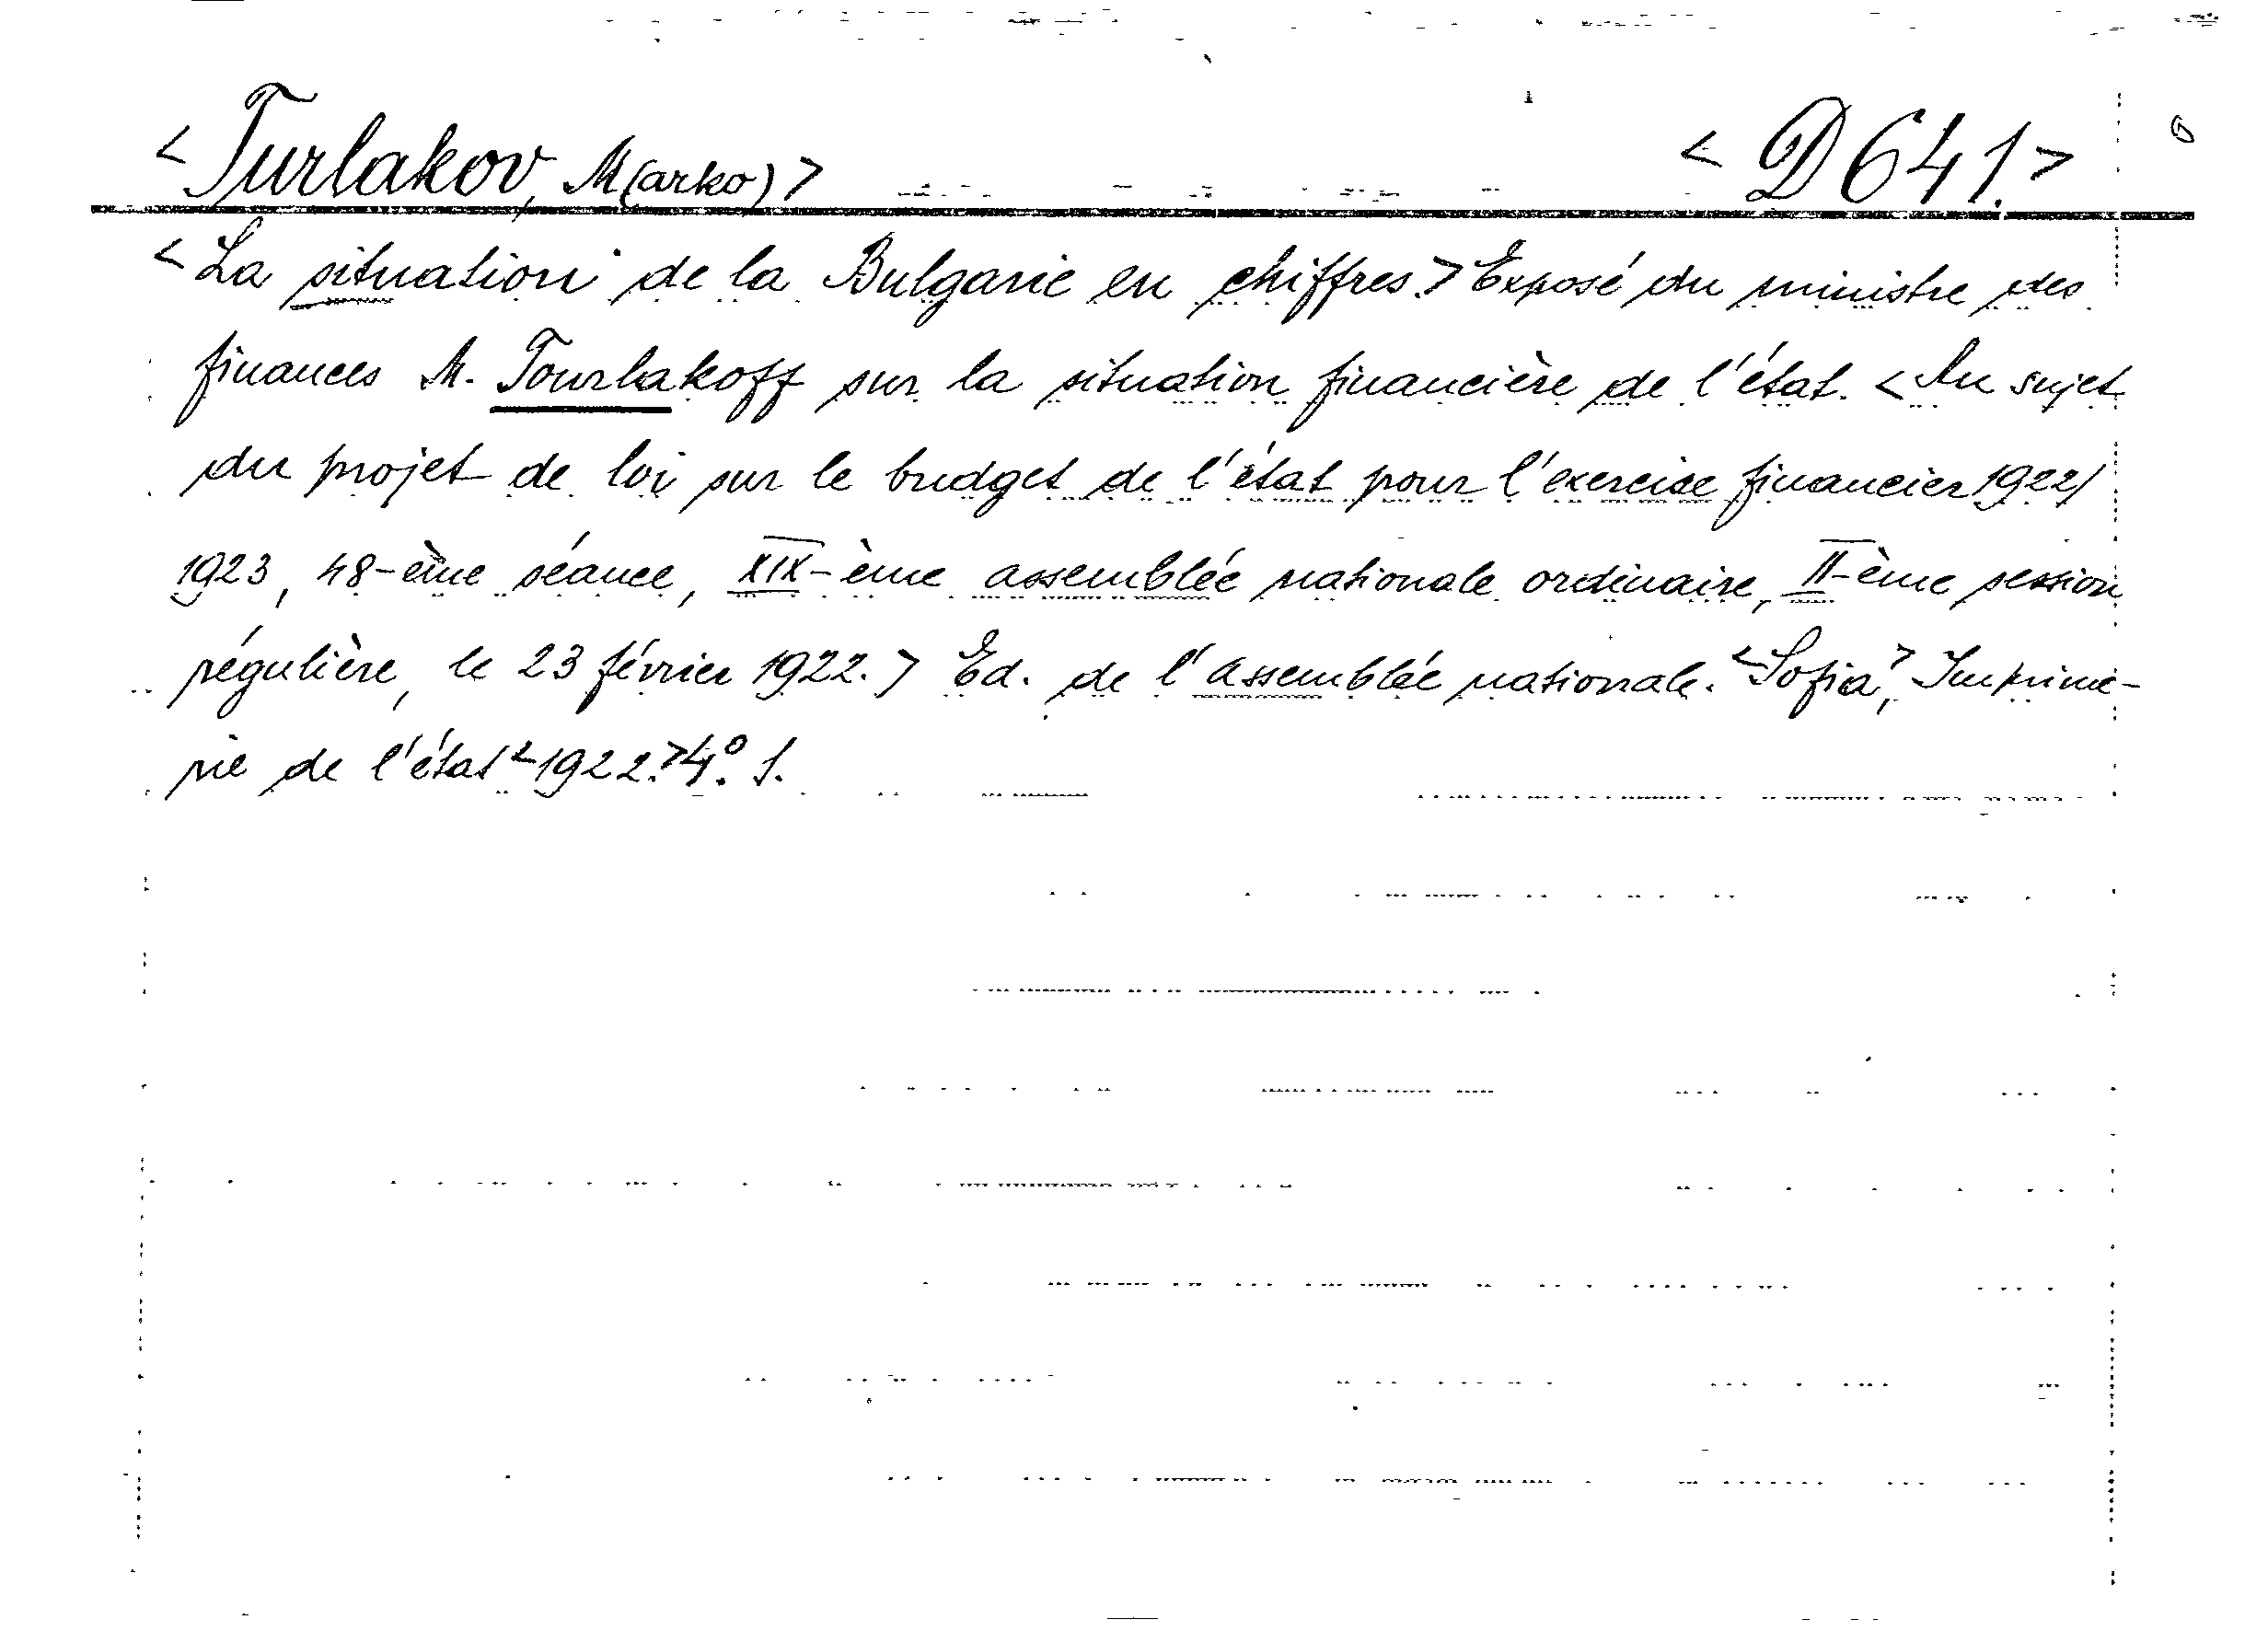 <Turlakov, M(arko)> <D 641.>
<La situation de la Bulgarie en chiffres.> Exposé du ministre des
finances M. Tourlakoff sur la situation financière de l'état. <Au sujet
du projet de loi sur le budget de l'état pour l'exercise financier 1922/
1923, 48-ème séance, XIX-ème assemblée nationale ordinaire, II-ème session
régulière, le 23 février 1922.> Ed. de l'assemblée nationale. <Sofia,> Imprime-
rie de l'état <1922.> 4°. 1.